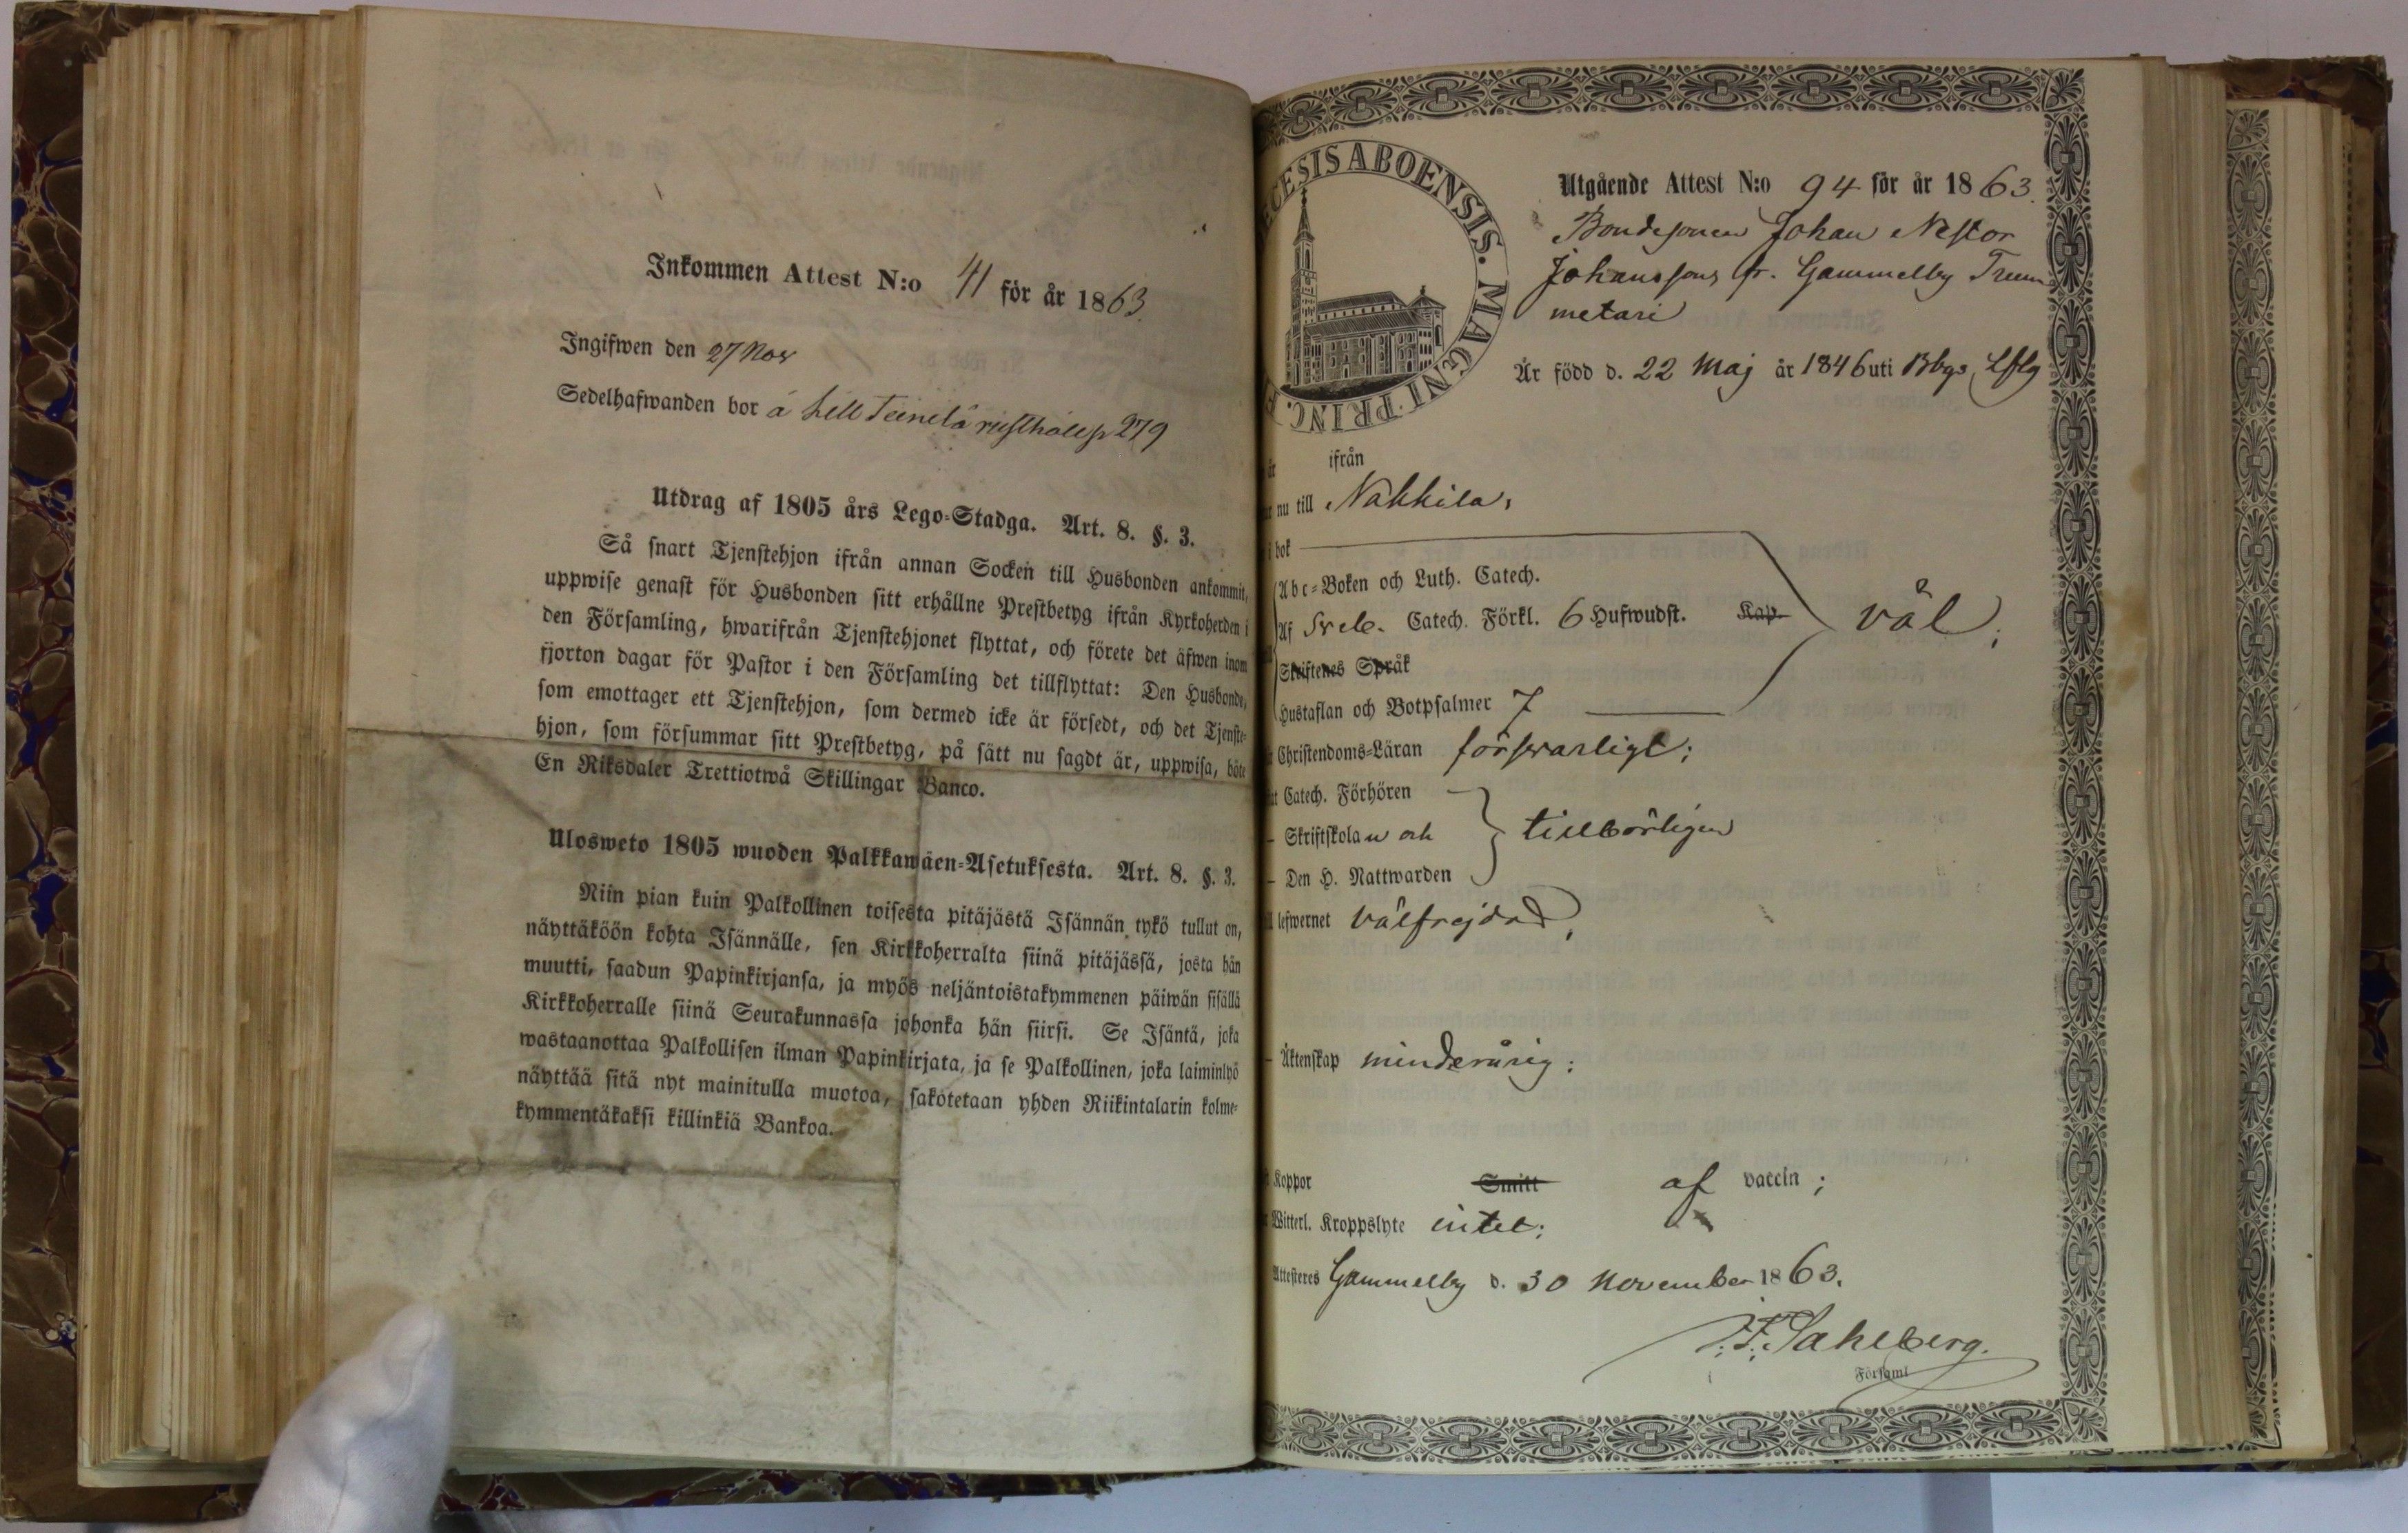 Inkommen Attest N:o 41 för år 1863.
Ingifwen den 27 Nov
Sedelhafwanden bor å Lill Teinilä rusthåll p 279
Utdrag af 1805 års Lego-Stadga. Art. 8. §. 3.
Så snart Tjenstehjon ifrån annan Socken till Husbonden ankommit,
uppwise genast för Husbonden sitt erhållne Prestbetyg ifrån Kyrkoherden i
den Församling, hwarifrån Tjenstehjonet flyttat, och förete det äfwen inom
fjorton dagar för Pastor i den Församling det tillflyttat: Den Husbonde,
som emottager ett Tjenstehjon, som dermed icke är försedt, och det Tjenste-
hjon, som försummar sitt Prestbetyg, på sätt nu sagdt är, uppwisa, böte
En Riksdaler Trettiotwå Skillingar Banco.
Ulosweto 1805 wuoden Palkkawäen-Asetuksesta. Art. 8. §. 3.
Niin pian kuin Palkollinen toisesta pitäjästä Isännän tykö tullut on,
näyttäköön kohta Isännälle, sen Kirkkoherralta siinä pitäjässä, josta hän
muutti, saadun Papinkirjansa, ja myös neljäntoistakymmenen päiwän sisällä
Kirkkoherralle siinä Seurakunnassa johonka hän siirsi. Se Isäntä, joka
wastaanottaa Palkollisen ilman Papinkirjata, ja se Palkollinen, joka laiminlyö
näyttää sitä nyt mainitulla muotoa, sakotetaan yhden Riikintalarin kolme-
kymmentäkaksi killinkiä Bankoa.
ECESIS ABOENSIS. MAGNI PRINC. F
Utgående Attest N:o 94 för år 1863.
Bondesonen Johan Nestor
Johansson fr. Gammelby Trum
metari
Är född d. 22 Maj år 1846 uti Bbgs Lflg
ifrån
nu till Nakkila,
i bok
Abc-Boken och Luth. Catech.
Af Sveb. Catech. Förkl. 6 Hufwudst. Kap. väl;
Skriftenes Språk
Hustaflan och Botpsalmer 7
Christendoms-Läran försvarligt;
Catech. Förhören
- Skriftskolan och tillbörligen
- Den H. Nattwarden
lefwernet välfrejdad,
- Äktenskap minderårig;
Koppor Smitt af vaccin;
Witterl. Kroppslyte intet;
Attesteres Gammelby d. 30 November 1863.
J. F. Sahlberg.
Församl